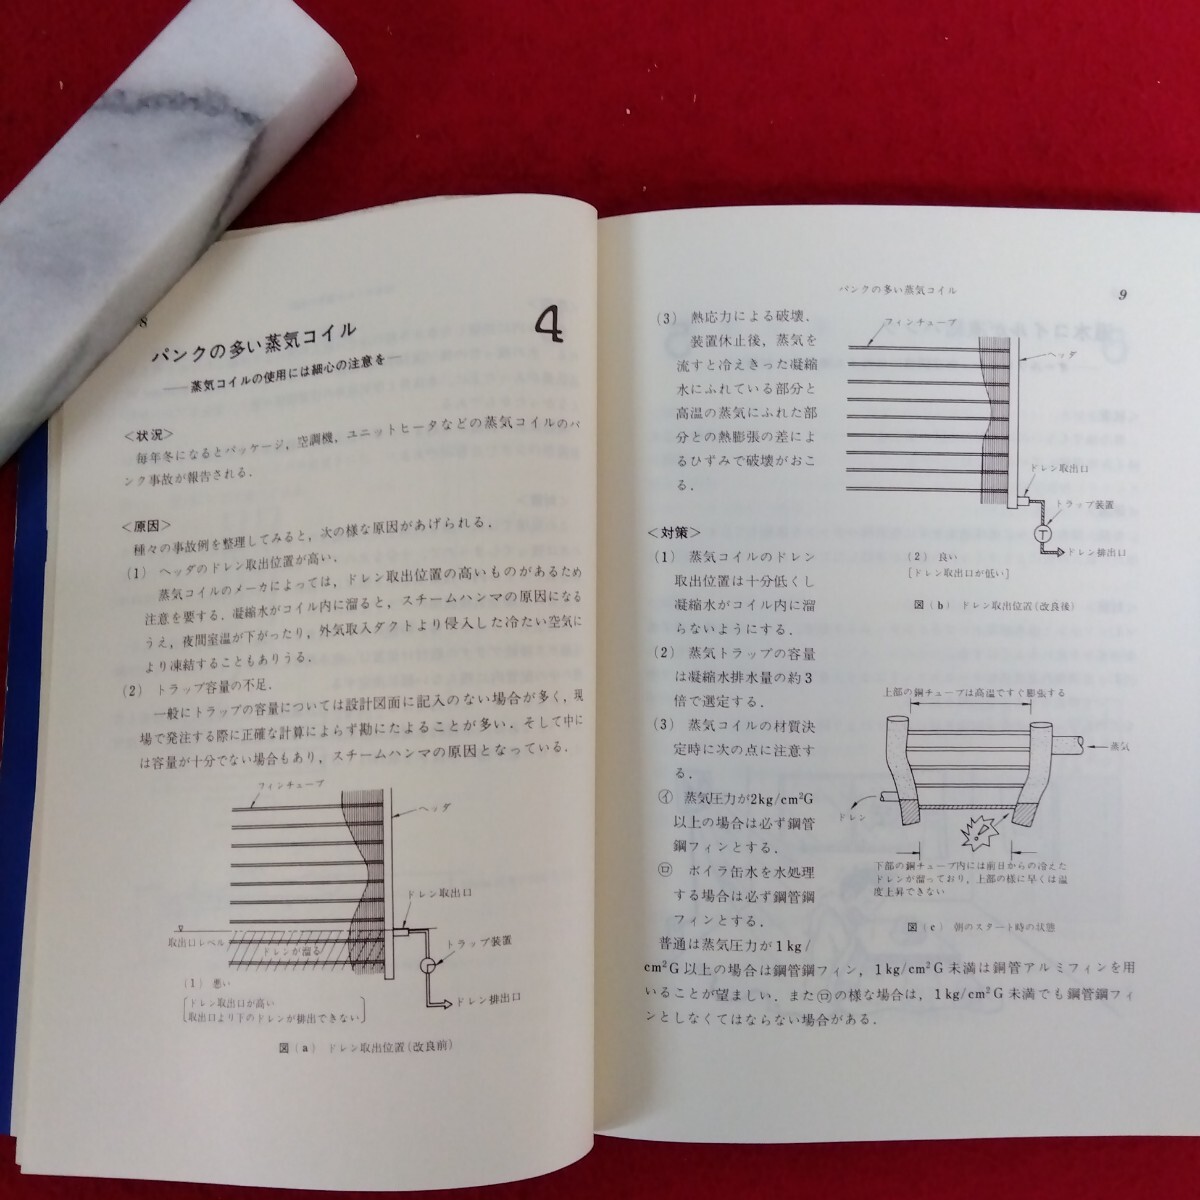 8
4
パンクの多い蒸気コイル
――蒸気コイルの使用には細心の注意を――
<状況>
毎年冬になるとパッケージ，空調機，ユニットヒータなどの蒸気コイルのパ
ンク事故が報告される．
<原因>
種々の事故例を整理してみると，次の様な原因があげられる．
(1) ヘッダのドレン取出位置が高い．
蒸気コイルのメーカによっては，ドレン取出位置の高いものがあるため
注意を要する．凝縮水がコイル内に溜ると，スチームハンマの原因になる
うえ，夜間室温が下がったり，外気取入ダクトより侵入した冷たい空気に
より凍結することもありうる．
(2) トラップ容量の不足．
一般にトラップの容量については設計図面に記入のない場合が多く，現
場で発注する際に正確な計算によらず勘にたよることが多い．そして中に
は容量が十分でない場合もあり，スチームハンマの原因となっている．
フィンチューブ
ヘッダ
ドレン取出口
取出口レベル
ドレンが溜る
トラップ装置
ドレン排出口
(1) 悪い
[ドレン取出口が高い
取出口より下のドレンが排出できない]
図(a) ドレン取出位置(改良前)
パンクの多い蒸気コイル
9
(3) 熱応力による破壊．
装置休止後，蒸気を
流すと冷えきった凝縮
水にふれている部分と
高温の蒸気にふれた部
分との熱膨張の差によ
るひずみで破壊がおこ
る．
フィンチューブ
ヘッダ
ドレン取出口
トラップ装置
T
ドレン排出口
(2) 良い
[ドレン取出口が低い]
図(b) ドレン取出位置(改良後)
<対策>
(1) 蒸気コイルのドレン
取出位置は十分低くし
凝縮水がコイル内に溜
らないようにする．
(2) 蒸気トラップの容量
は凝縮水排水量の約3
倍で選定する．
(3) 蒸気コイルの材質決
定時に次の点に注意す
る．
㋑ 蒸気圧力が2kg/cm²G
以上の場合は必ず鋼管
鋼フィンとする．
㋺ ボイラ缶水を水処理
する場合は必ず鋼管鋼
フィンとする．
普通は蒸気圧力が1kg/
cm²G以上の場合は鋼管鋼フィン，1kg/cm²G未満は銅管アルミフィンを用
いることが望ましい．また㋺の様な場合は，1kg/cm²G未満でも鋼管鋼フィ
ンとしなくてはならない場合がある．
上部の銅チューブは高温ですぐ膨張する
蒸気
ドレン
下部の銅チューブ内には前日からの冷えた
ドレンが溜っており，上部の様に早くは温
度上昇できない
図(c) 朝のスタート時の状態